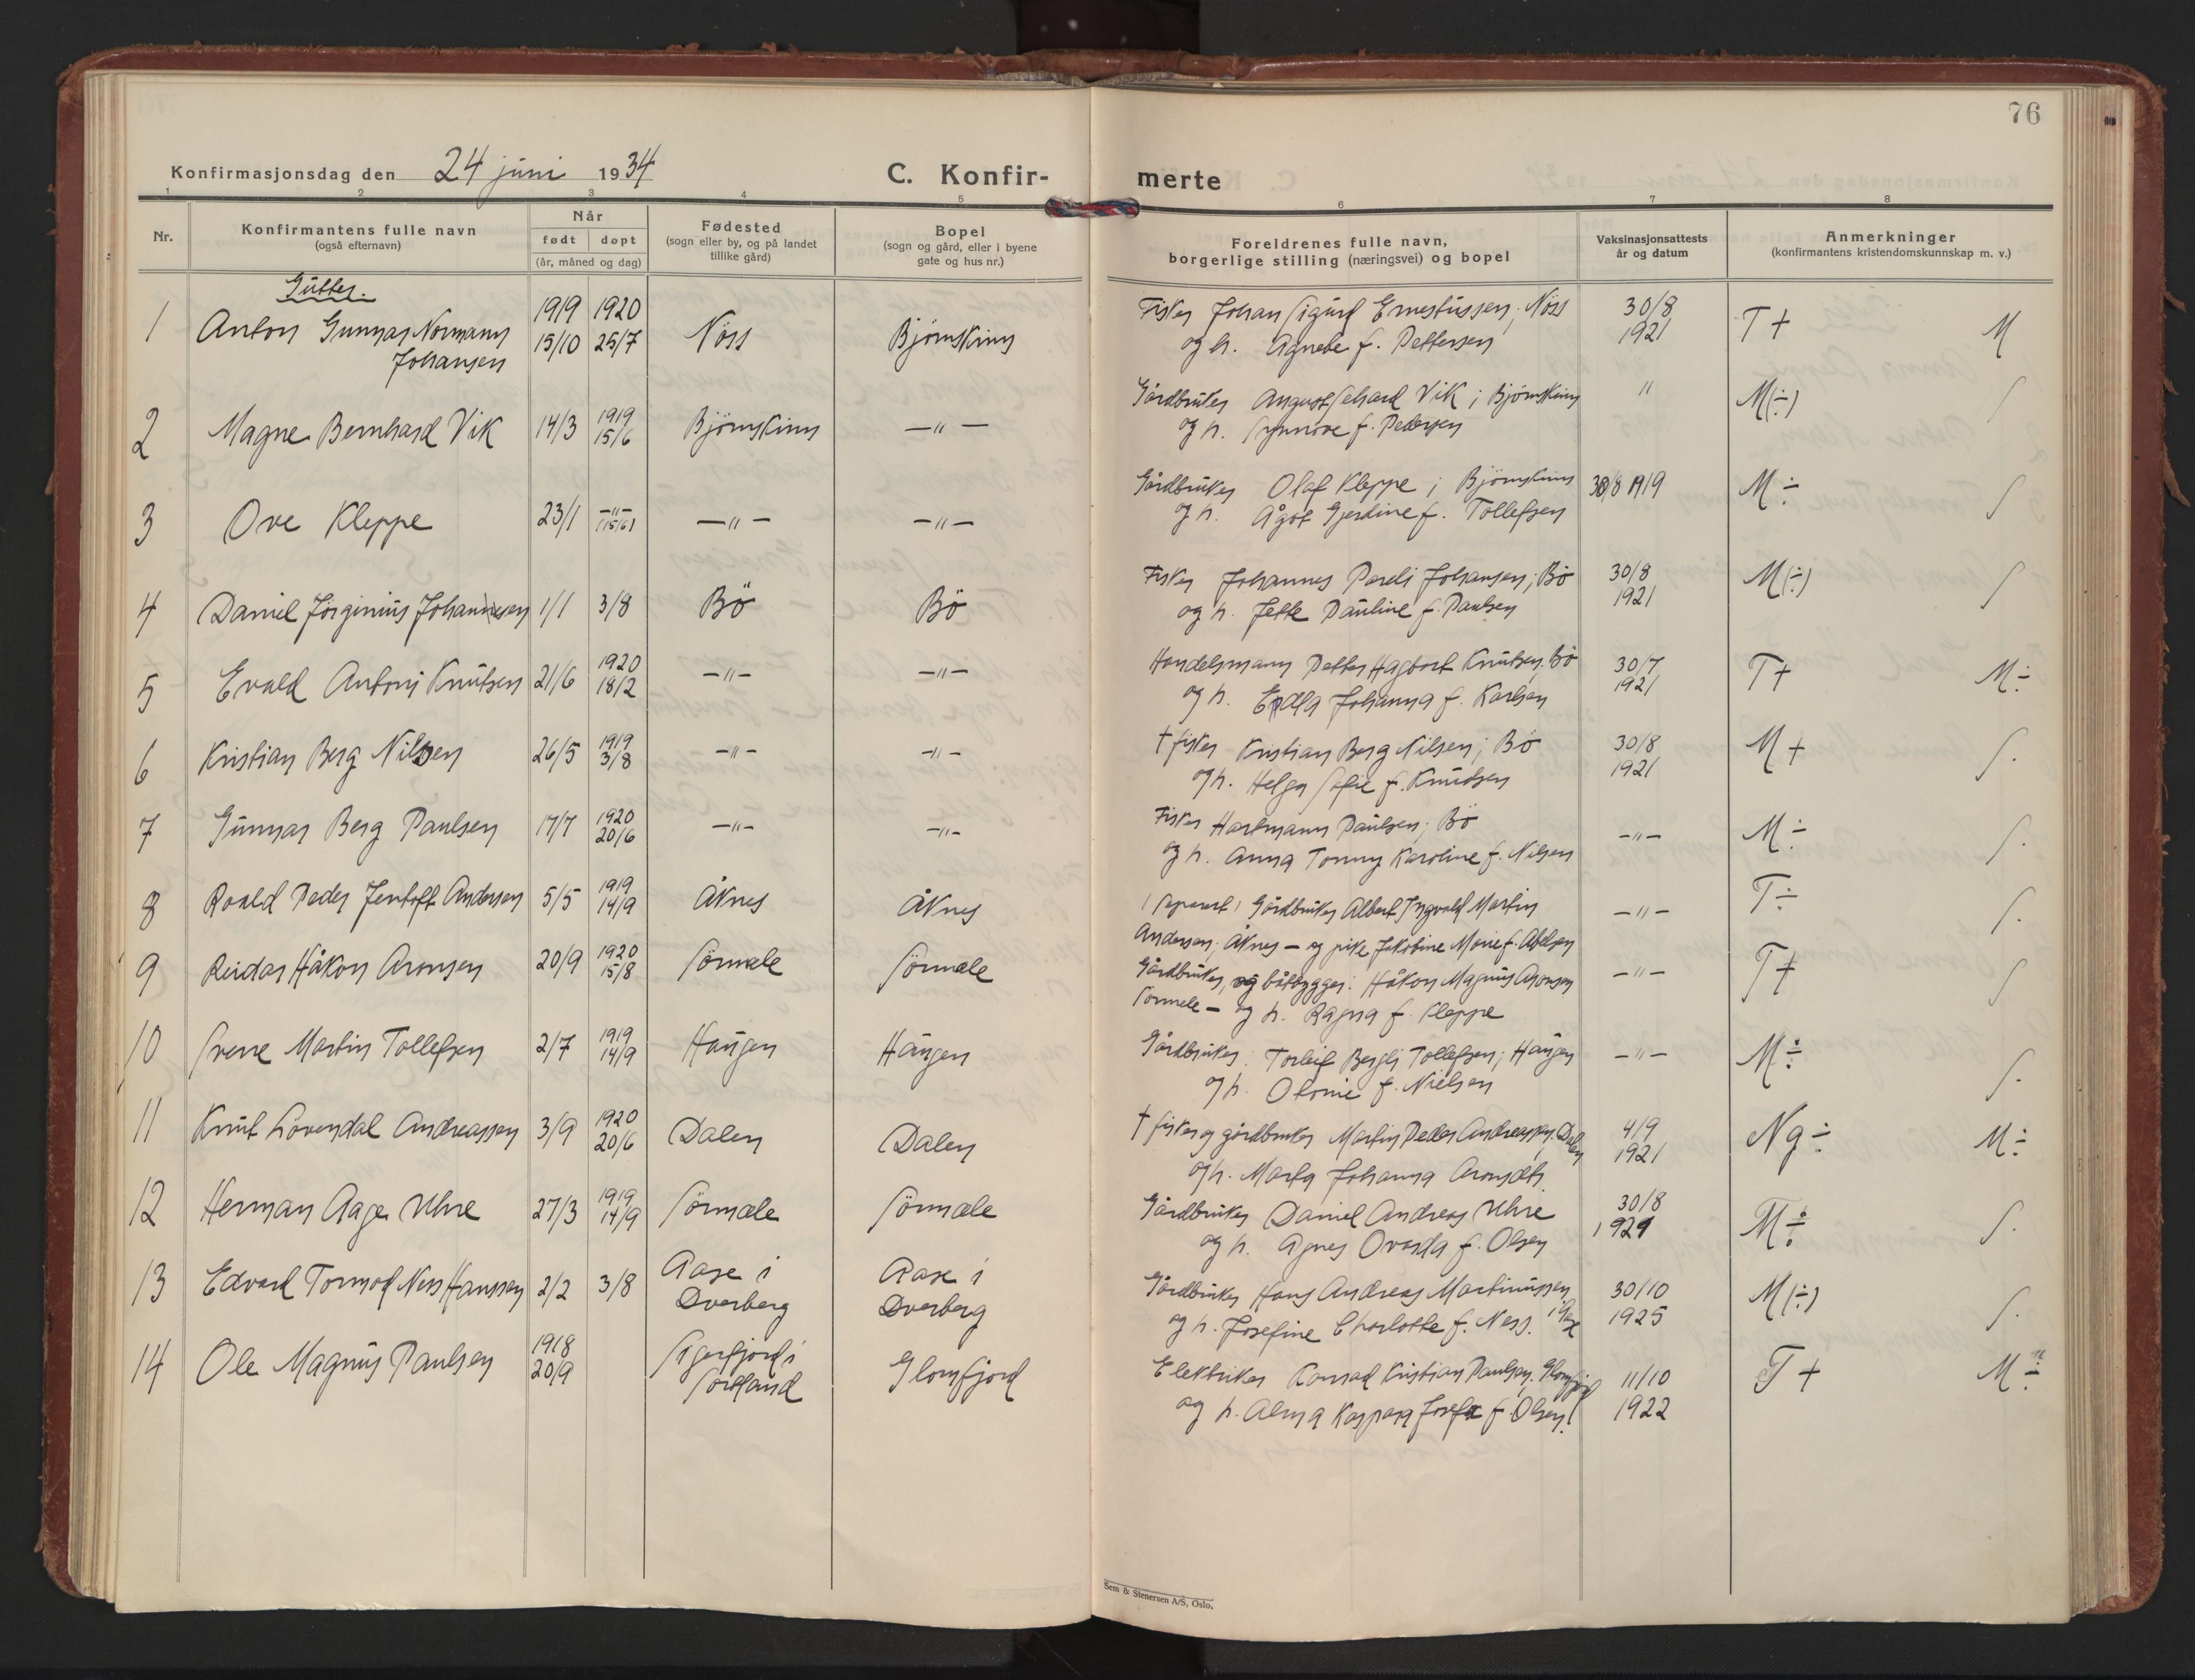 76
Konfirmasjonsdag den 24 juni 1934
C. Konfir-
merte
1 2 3 4 5 6 7 8
Nr.
Konfirmantens fulle navn
(også efternavn)
Når
født døpt
(år, måned og dag)
Fødested
(sogn eller by, og på landet
tillike gård)
Bopel
(sogn og gård, eller i byene
gate og hus nr.)
Foreldrenes fulle navn,
borgerlige stilling (næringsvei) og bopel
Vaksinasjonsattests
år og datum
Anmerkninger
(konfirmantens kristendomskunnskap m. v.)
Gutter.
1 Anton Gunnar Normann 1919 1920
Johansen 15/10 25/7 Nöss Björnskinn
Fisker Johan Sigurd Ernestussen; Nöss 30/8 T +
og h. Agnete f. Pettersen 1921 M
2 Magne Bernhard Vik 14/3 1919
15/6 Björnskinn —"—
Gårdbruker August Vik; Björnskinn " M(÷)
og h. Synnöve f. Pedersen
3 Ove Kleppe 23/1 —"—
(15/6) —"— —"—
Gårdbruker Olaf Kleppe; Björnskinn 30/8 1919 M ÷
og h. Ågot Gjerdine f. Tollefsen
4 Daniel Jörginius Johannesen 1/1 3/8 Bö Bö
Fisker Johannes Pareli Johansen; Bö 30/8 M(÷)
og h. Jette Pauline f. Paulsen 1921
5 Evald Antoni Knutsen 21/6 1920
18/2 —"— —"—
Handelsmann Petter Hagbart Knutsen. Bö 30/7 T + M ÷
og h. Johanna f. Karlsen 1921
6 Kristian Berg Nilsen 26/5 1919
3/8 —"— —"—
† fisker Kristian Berg Nilsen; Bö 30/8 M +
og h. Helga Sofie f. Knudsen 1921
7 Gunnar Berg Paulsen 17/7 1920
20/6 —"— —"—
Fisker Hartmann Paulsen; Bö —"— M ÷
og h. Anna Tonny Karoline f. Nilsen
8 Roald Peder Jentoft Andersen 5/5 1919
14/9 Åknes Åknes
(Separert) Gårdbruker Albert Ingvald Martin —"— T ÷
Andersen; Åknes — og pike Jakobine Marie f. Abelsen
9 Reidar Håkon Aronsen 20/9 1920
15/8 Sörmele Sörmele
Gårdbruker og båtbygger: Håkon Magnus Aronsen —"— T +
Sörmele — og h. Ragna f. Kleppe
10 Sverre Martin Tollefsen 2/7 1919
14/9 Haugen Haugen
Gårdbruker: Torleif Bergli Tollefsen; Haugen —"— M ÷
og h. Otonie f. Nielsen
11 Knut Lövendal Andreassen 3/9 1920
20/6 Dalen Dalen
† fisker og gårdbruker Martin Peder Andreassen; Dalen 4/9 Ng ÷ M ÷
og h. Marta Johanna Aronsdtr. 1921
12 Herman Aage Uhre 27/3 1919
14/9 Sörmele Sörmele
Gårdbruker Daniel Andreas Uhre 30/8 M ÷
og h. Agnes Ovarda f. Olsen 1921
13 Edvard Tormod Ness Hanssen 2/2 3/8 Aase i
Dverberg
Aase i
Dverberg
Gårdbruker Hans Andreas Martinussen 30/10 M(÷)
og h. Josefine Charlotte f. Ness. i Aase 1925
14 Ole Magnus Paulsen 1918
20/9 Sigerfjord i
Sortland
Glomfjord
Elektriker Konrad Kristian Paulsen; Glomfjord 11/10 T + M ÷
og h. Alma Kaspara Josefa f. Olsen. 1922
Sem & Stenersen A/S, Oslo.